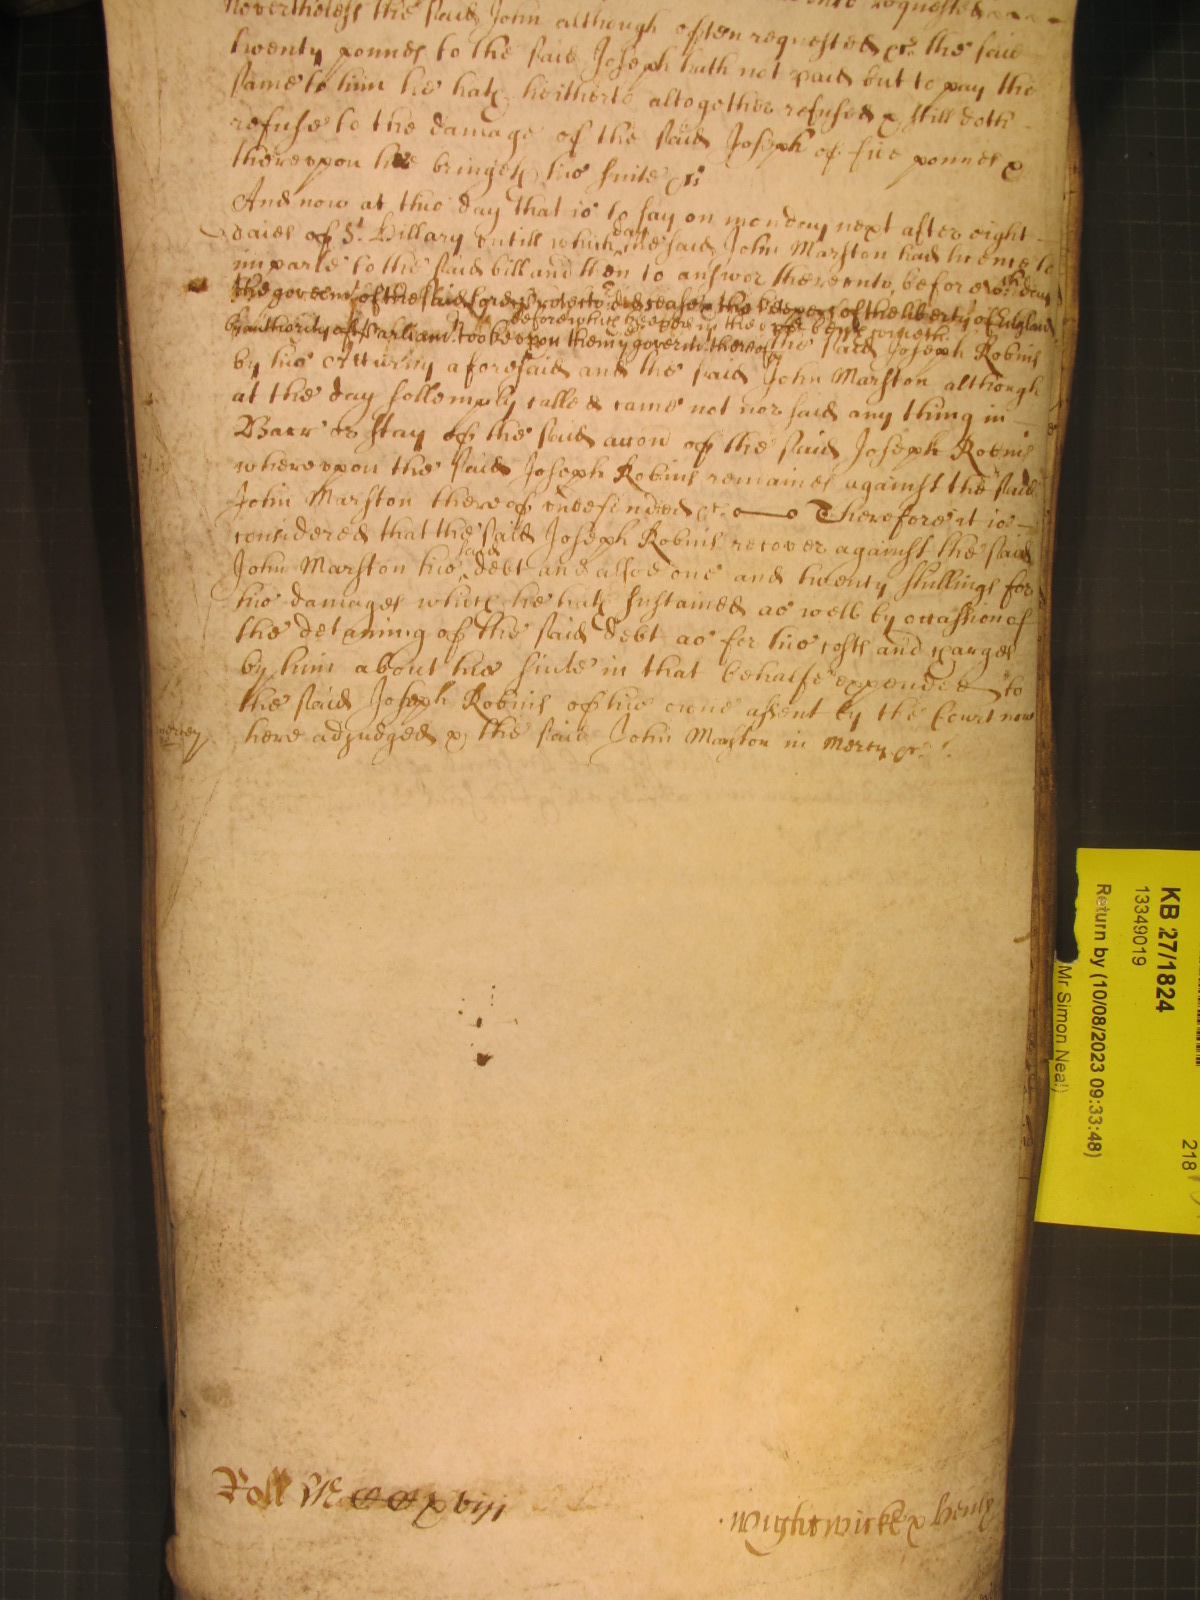 requested
Nevertheless the said John although often requested &c. the said
twenty pounes to the said Joseph hath not paid but to pay the
same to him he hath hitherto altogether refused & still doth
refuse to the damage of the said Joseph of five pounes &
thereupon hee bringeth his suite &c
And now at this day that is to say on monday next after eight
daies of St. Hillary untill which day the said John Marston had licence to
imparle to the said bill and then to answer thereunto, before wch day
the governt of the said former protector did cease & the keepers of the liberty of England
by authority of Parliamt tooke upon them ye governt thereof
before which keepers in the upper bench cometh
the said Joseph Robins
by his Atturny aforesaid and the said John Marston although
at the day sollempnly called came not nor said any thing in
Barr or stay of the said accon of the said Joseph Robins
whereupon the said Joseph Robins remaines against the said
John Marston thereof undefended &c. Therefore it is
considered that the said Joseph Robins recover against the said
John Marston his said debt and alsoe one and twenty shillings for
his damages which he hath sustained as well by occassion of
the detaning of the said debt as for his costs and charges
by him about his suite in that behalfe expended to
the said Joseph Robins of his owne assent by the Court now
here adjudged & the said John Marston in mercy &c.
mercy
Roll
xviij
Wightwicke & Henly
KB 27/1824
13349019
Return by (10/08/2023 09:33:48)
Mr Simon Neal)
218